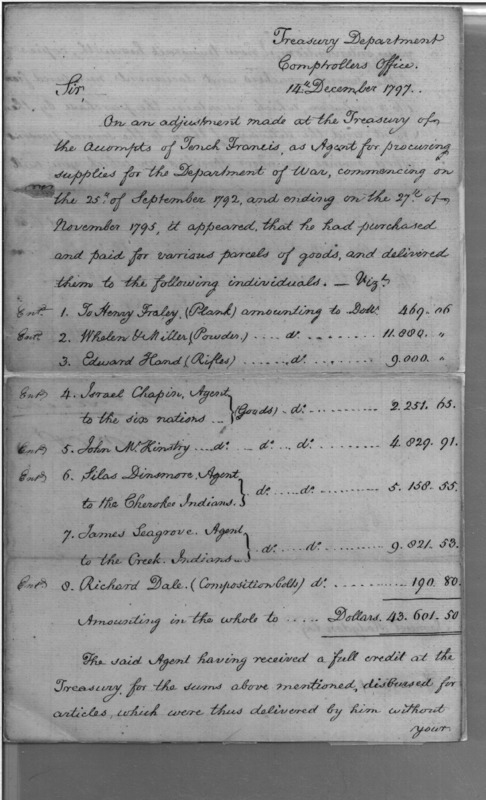 Treasury Department
Comptrollers Office.
14th December 1797.
Sir,
On an adjustment made at the Treasury of
the Accompts of Tench Francis, as Agent for procuring
supplies for the Department of War, commencing on
the 25th of September 1792, and ending on the 27th of
November 1795, it appeared, that he had purchased
and paid for various parcels of goods, and delivered
them to the following individuals. — Vizt.
Entd. 1. To Henry Fraley, (Plank) amounting to Dolls. 469. 06
Entd. 2. Whelen & Miller (Powder.) .... do. ........ 11.880. "
3. Edward Hand (Rifles) ........ do. ........ 9.000. "
Entd 4. Israel Chapin, Agent
to the six nations ... } (Goods) do. ........ 2.251. 65.
Entd 5. John McKinstry ... do. .... do. do. ........ 4.829. 91.
Entd 6. Silas Dinsmore, Agent
to the Cherokee Indians. } do. .... do. ........ 5.158. 55.
7. James Seagrove. Agent
to the Creek Indians .. } do. .... do. ........ 9.821. 53.
Entd 8. Richard Dale. (Composition Bolts) do. ........ 190. 80
Amounting in the whole to ..... Dollars. 43.601. 50
The said Agent having received a full credit at the
Treasury for the sums above mentioned, disbursed for
articles, which were thus delivered by him without
your